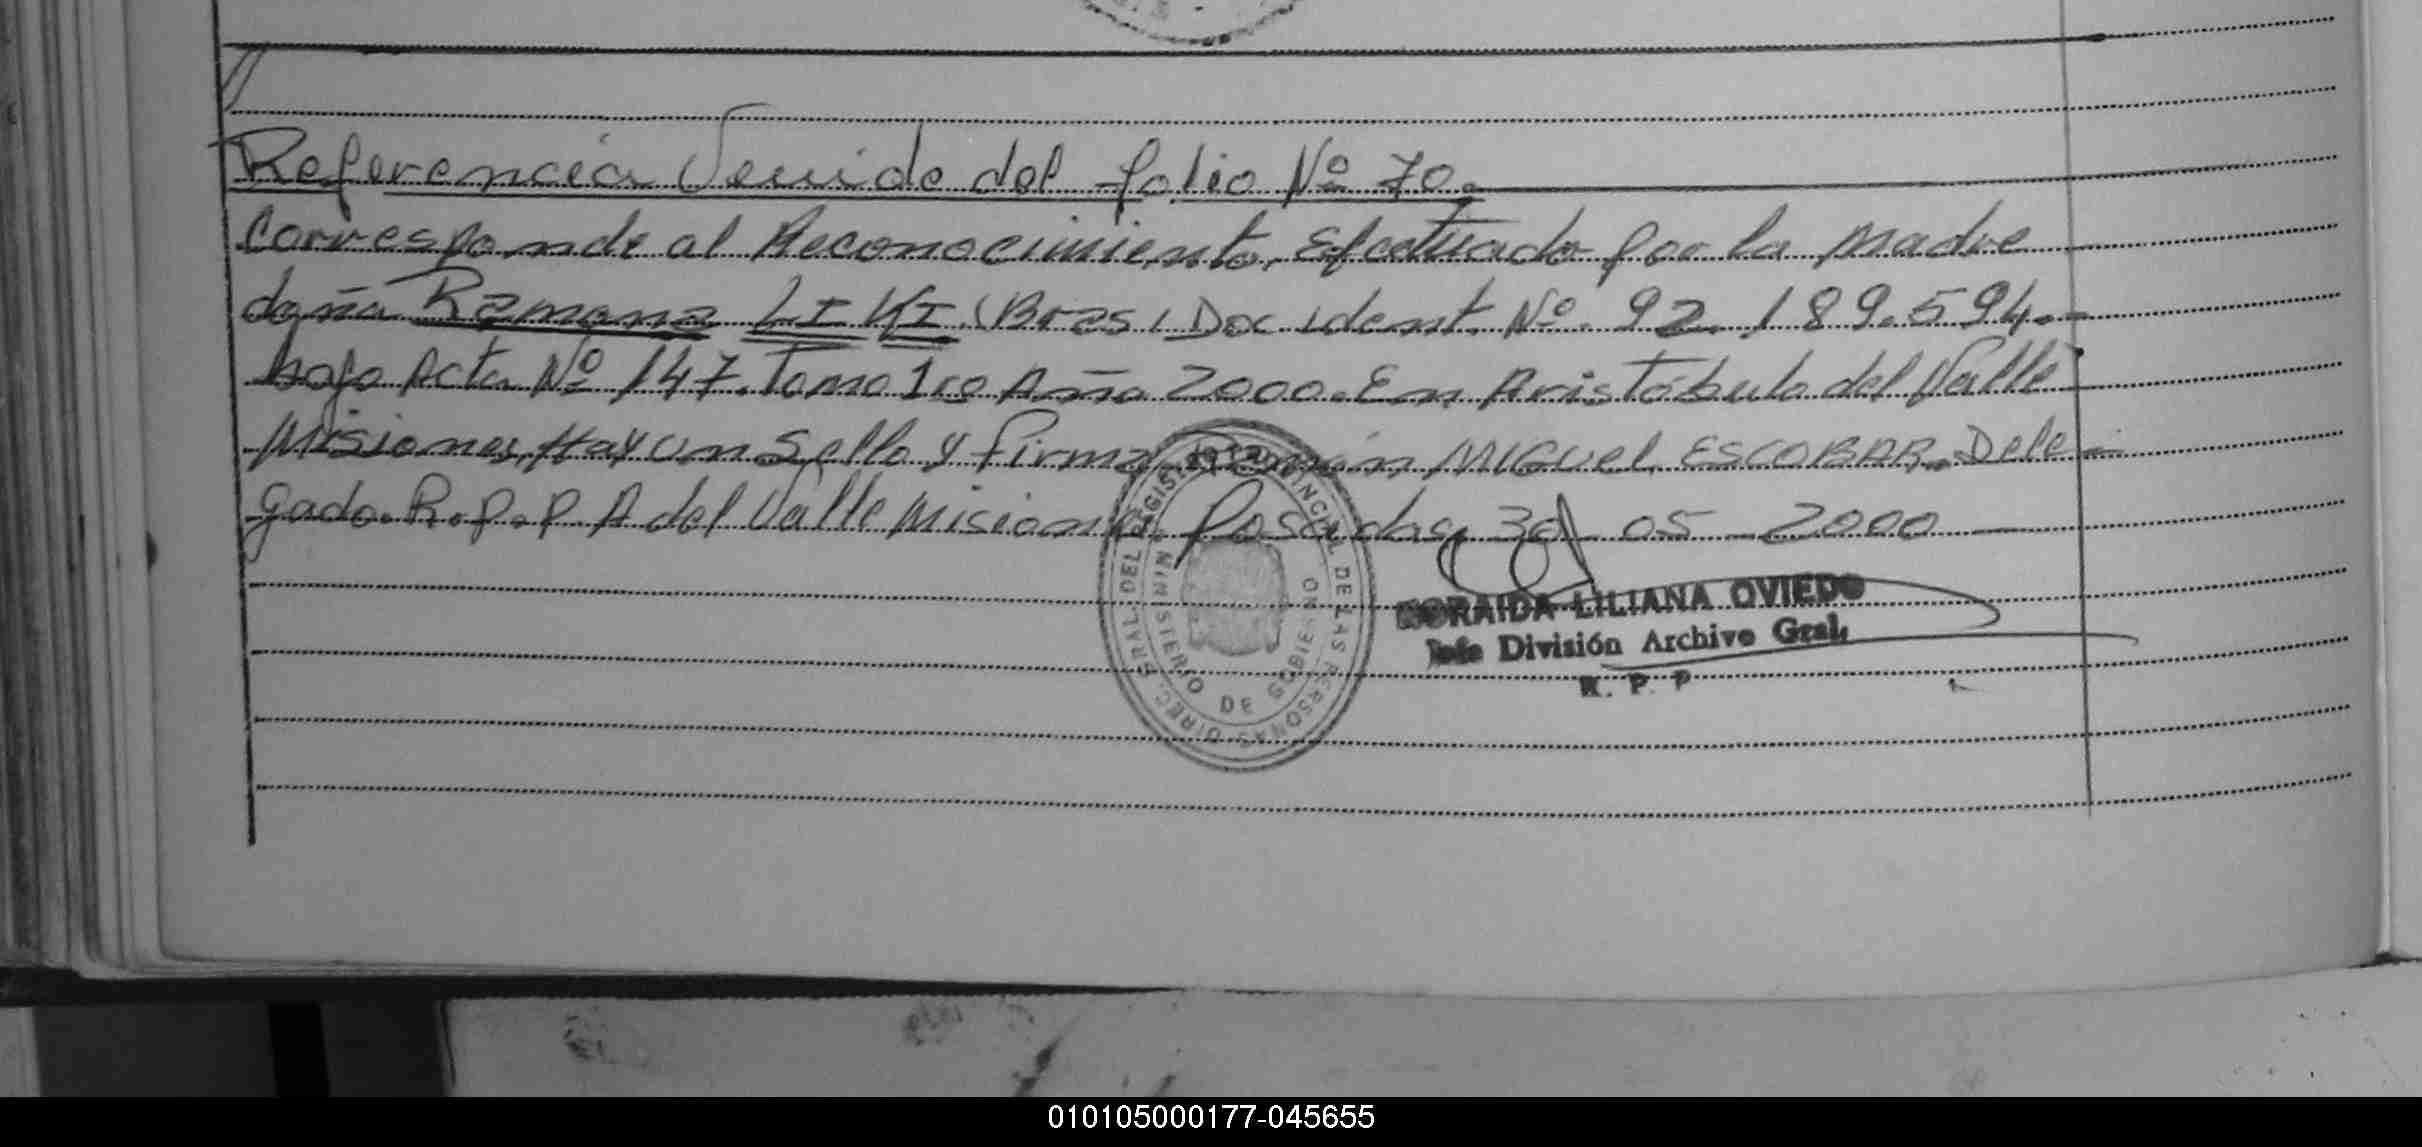 Referencia Venida del folio Nº 70.
Corresponde al Reconocimiento, Efectuado por la madre
doña Ramona LI KI. (Bras, Doc ident. Nº. 92.189.594.-
bajo Acta Nº 147. Tomo 1ro Año 2000. En Aristóbulo del Valle
Misiones, Hay un Sello y firma Ramón MIGUEL ESCOBAR. Dele-
gado. R.P.P. A del Valle Misiones Posadas, 30 05 2000
LILIANA OVIEDO
Jefe División Archivo Gral.
R. P. P
DIREC. GRAL. DEL REGISTRO PROVINCIAL DE LAS PERSONAS
MINISTERIO DE GOBIERNO
010105000177-045655